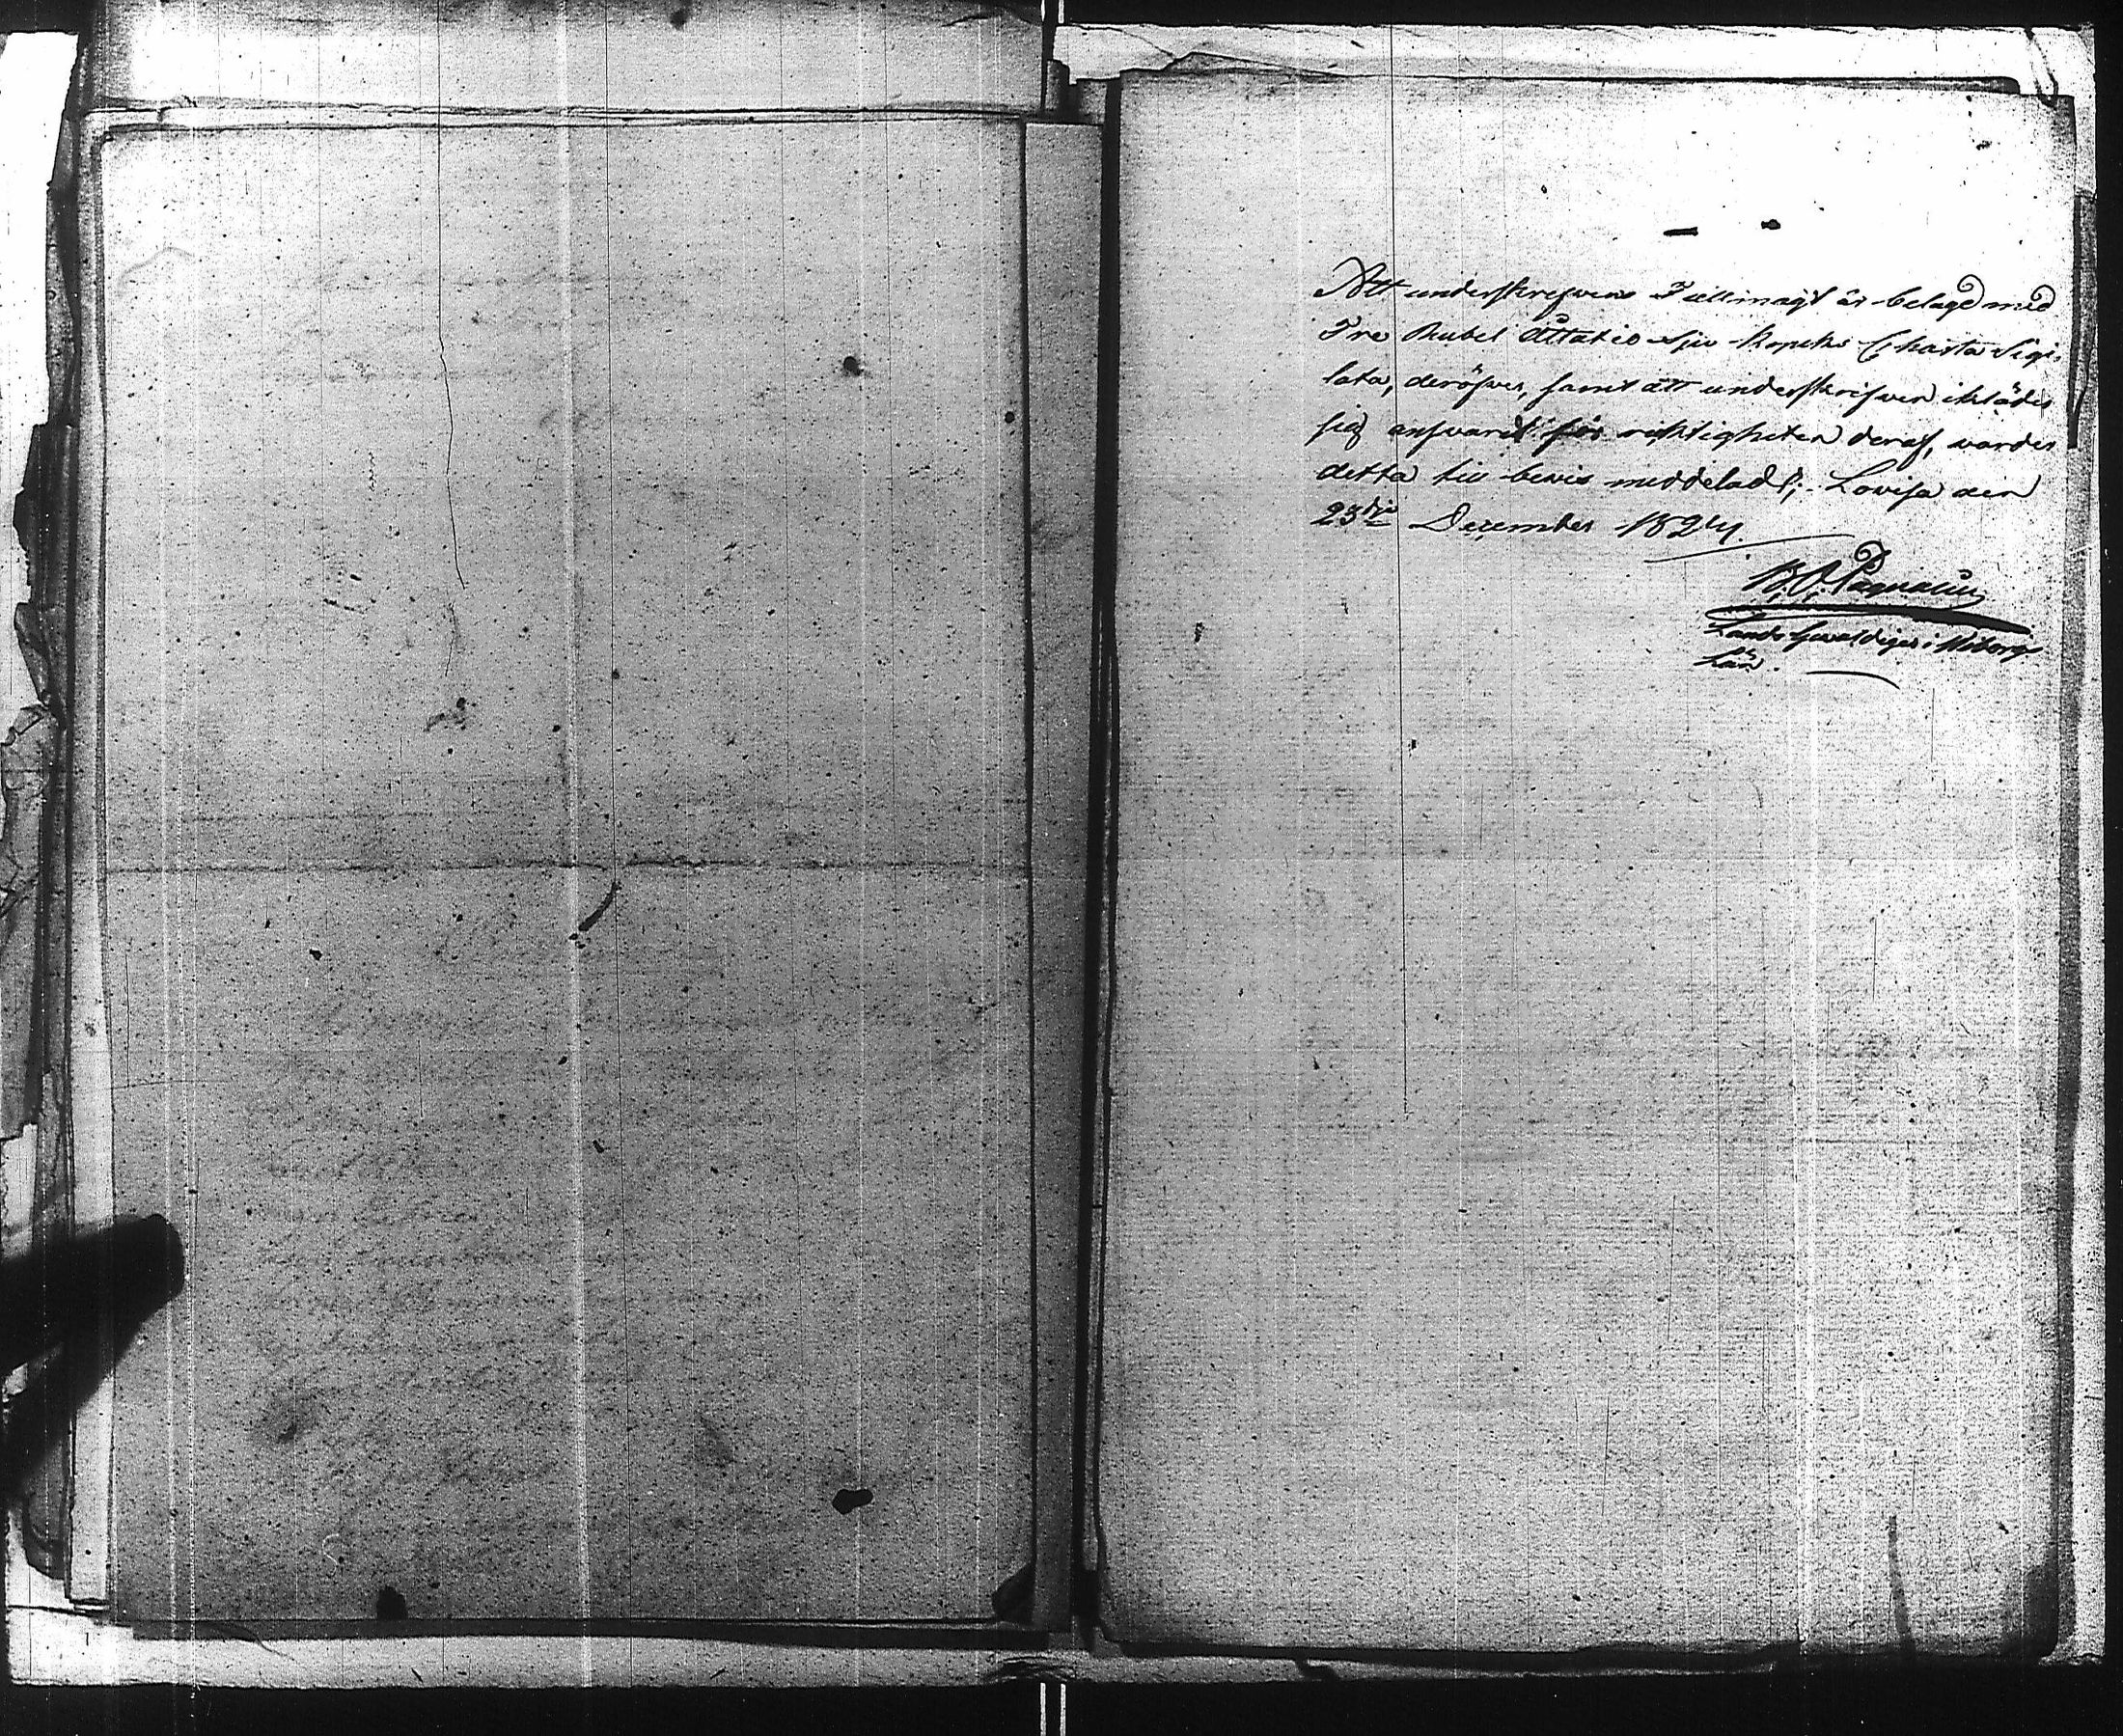 Att underskrefwens Fullmagt är belagd med
Tre Rubel Åttatio Sju Kopeks Charta Sigi-
lata, deröfwer, samt att underskrifwen iklädes
sig answaret för richtigheten deraf, warder
detta till bewis meddeladt; Lovisa den
23dje December 1824.
Lands Gewaldiger i Wiborgs
Län.